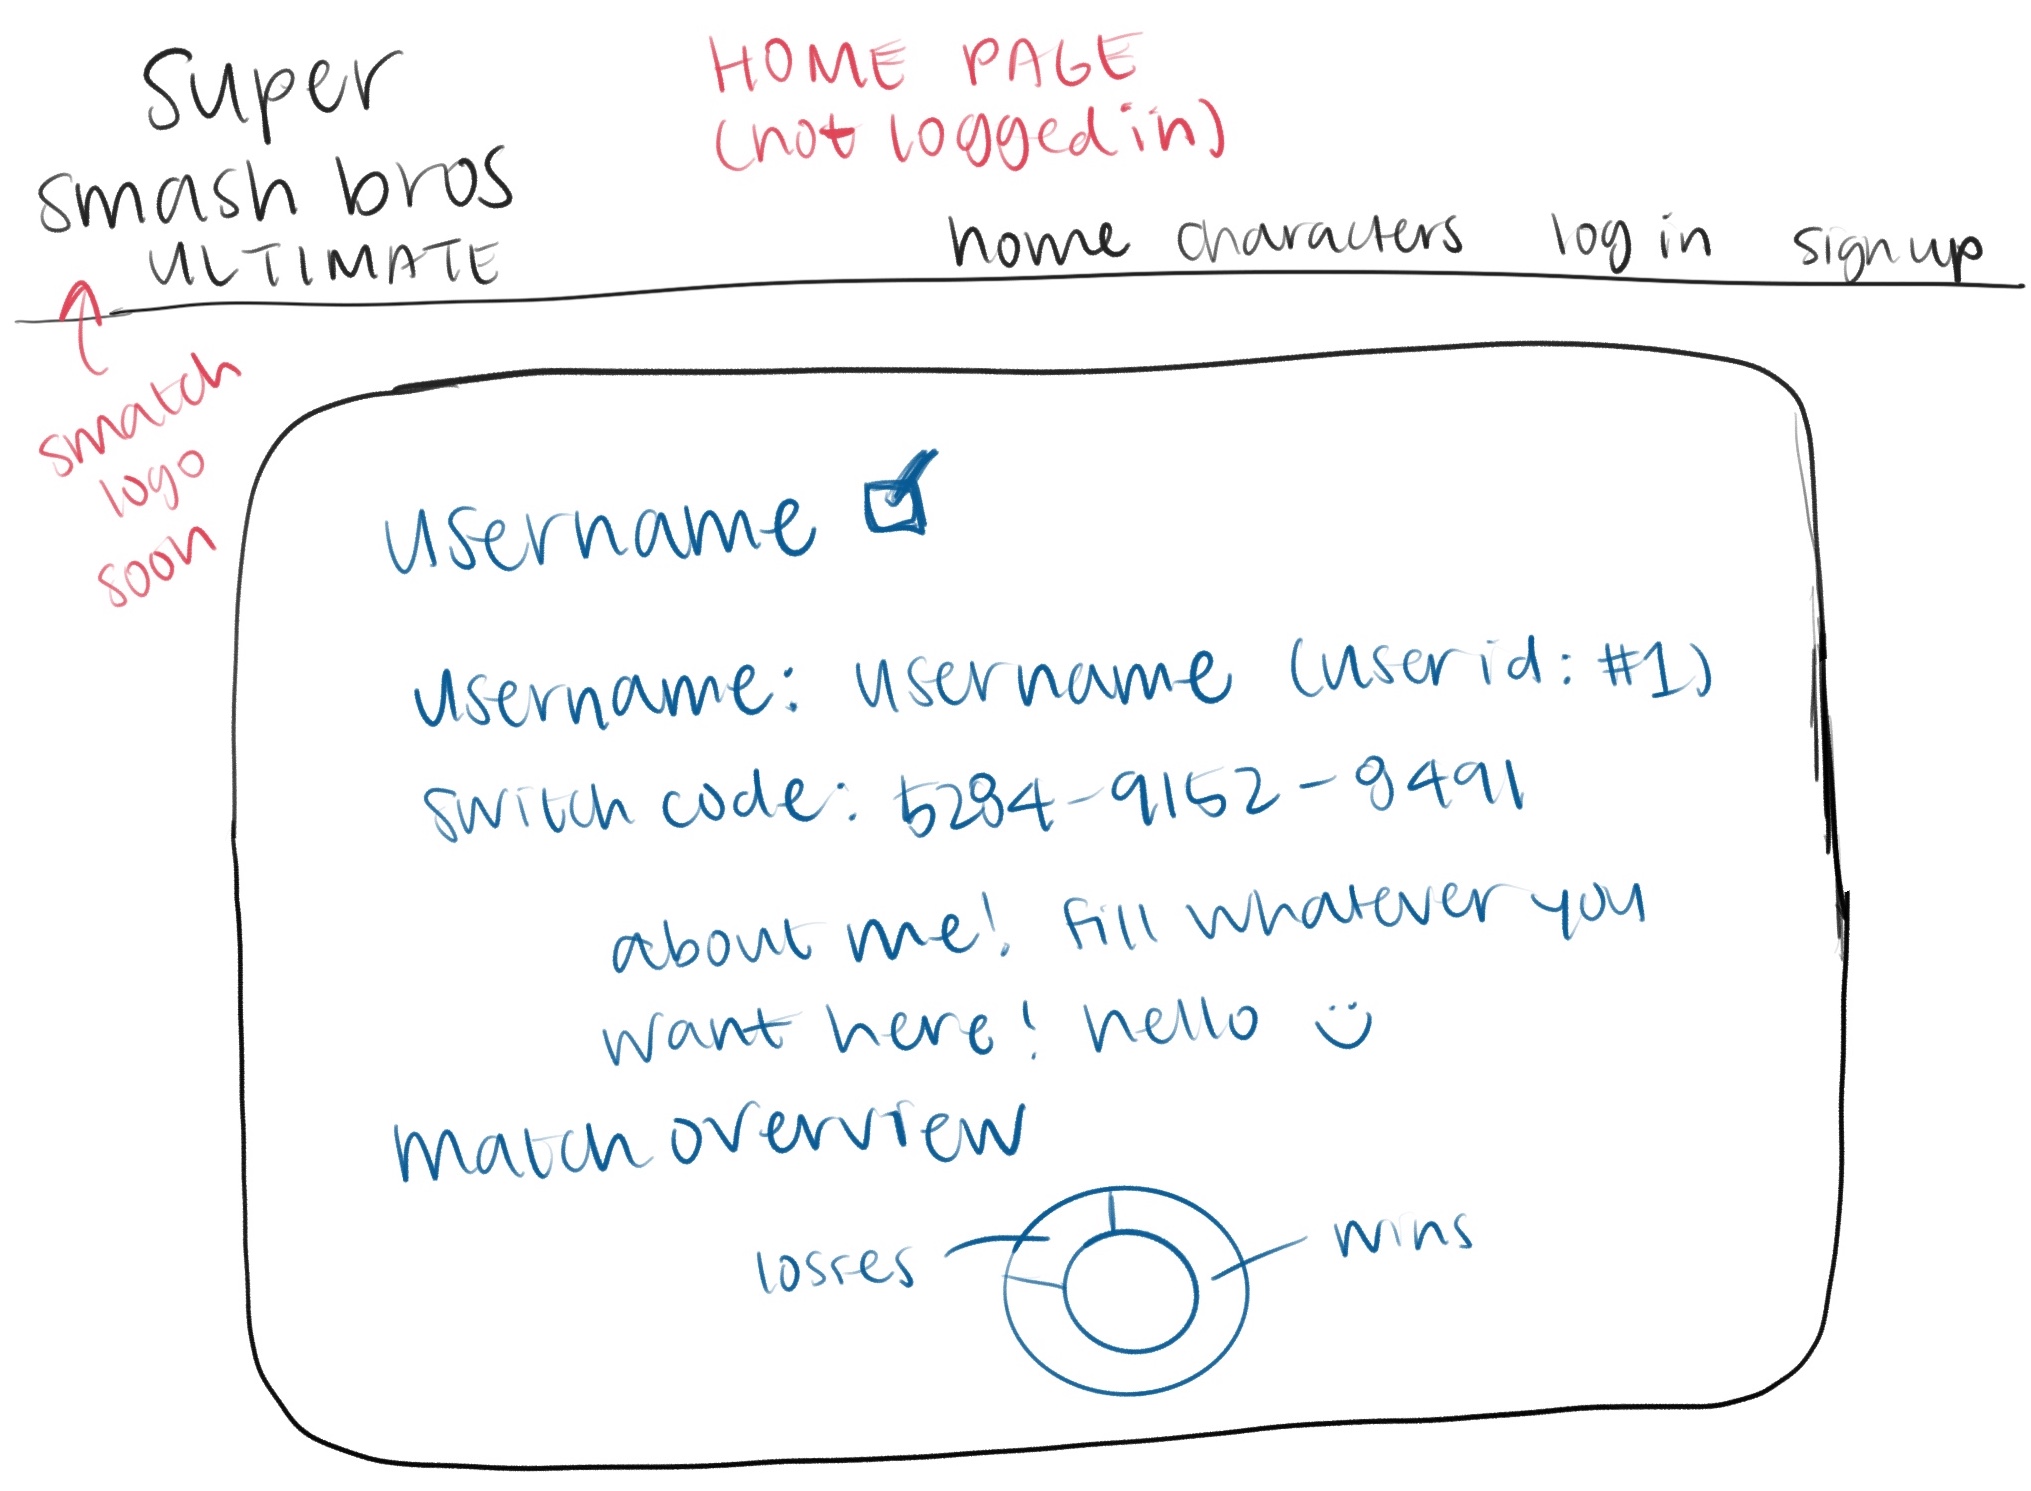 super
smash bros
ULTIMATE
HOME PAGE
(not logged in)
home characters log in sign up
smatch
logo
soon
username
username: username (userid: #1)
switch code: 5284-9152-8491
about me! fill whatever you
want here! hello :)
match overview
losses
wins